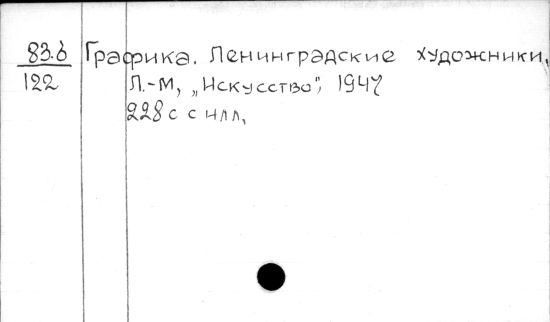 83.6 Графика. Ленинградские художники,
122 Л.-М, „Искусство", 1947
228 с с илл,